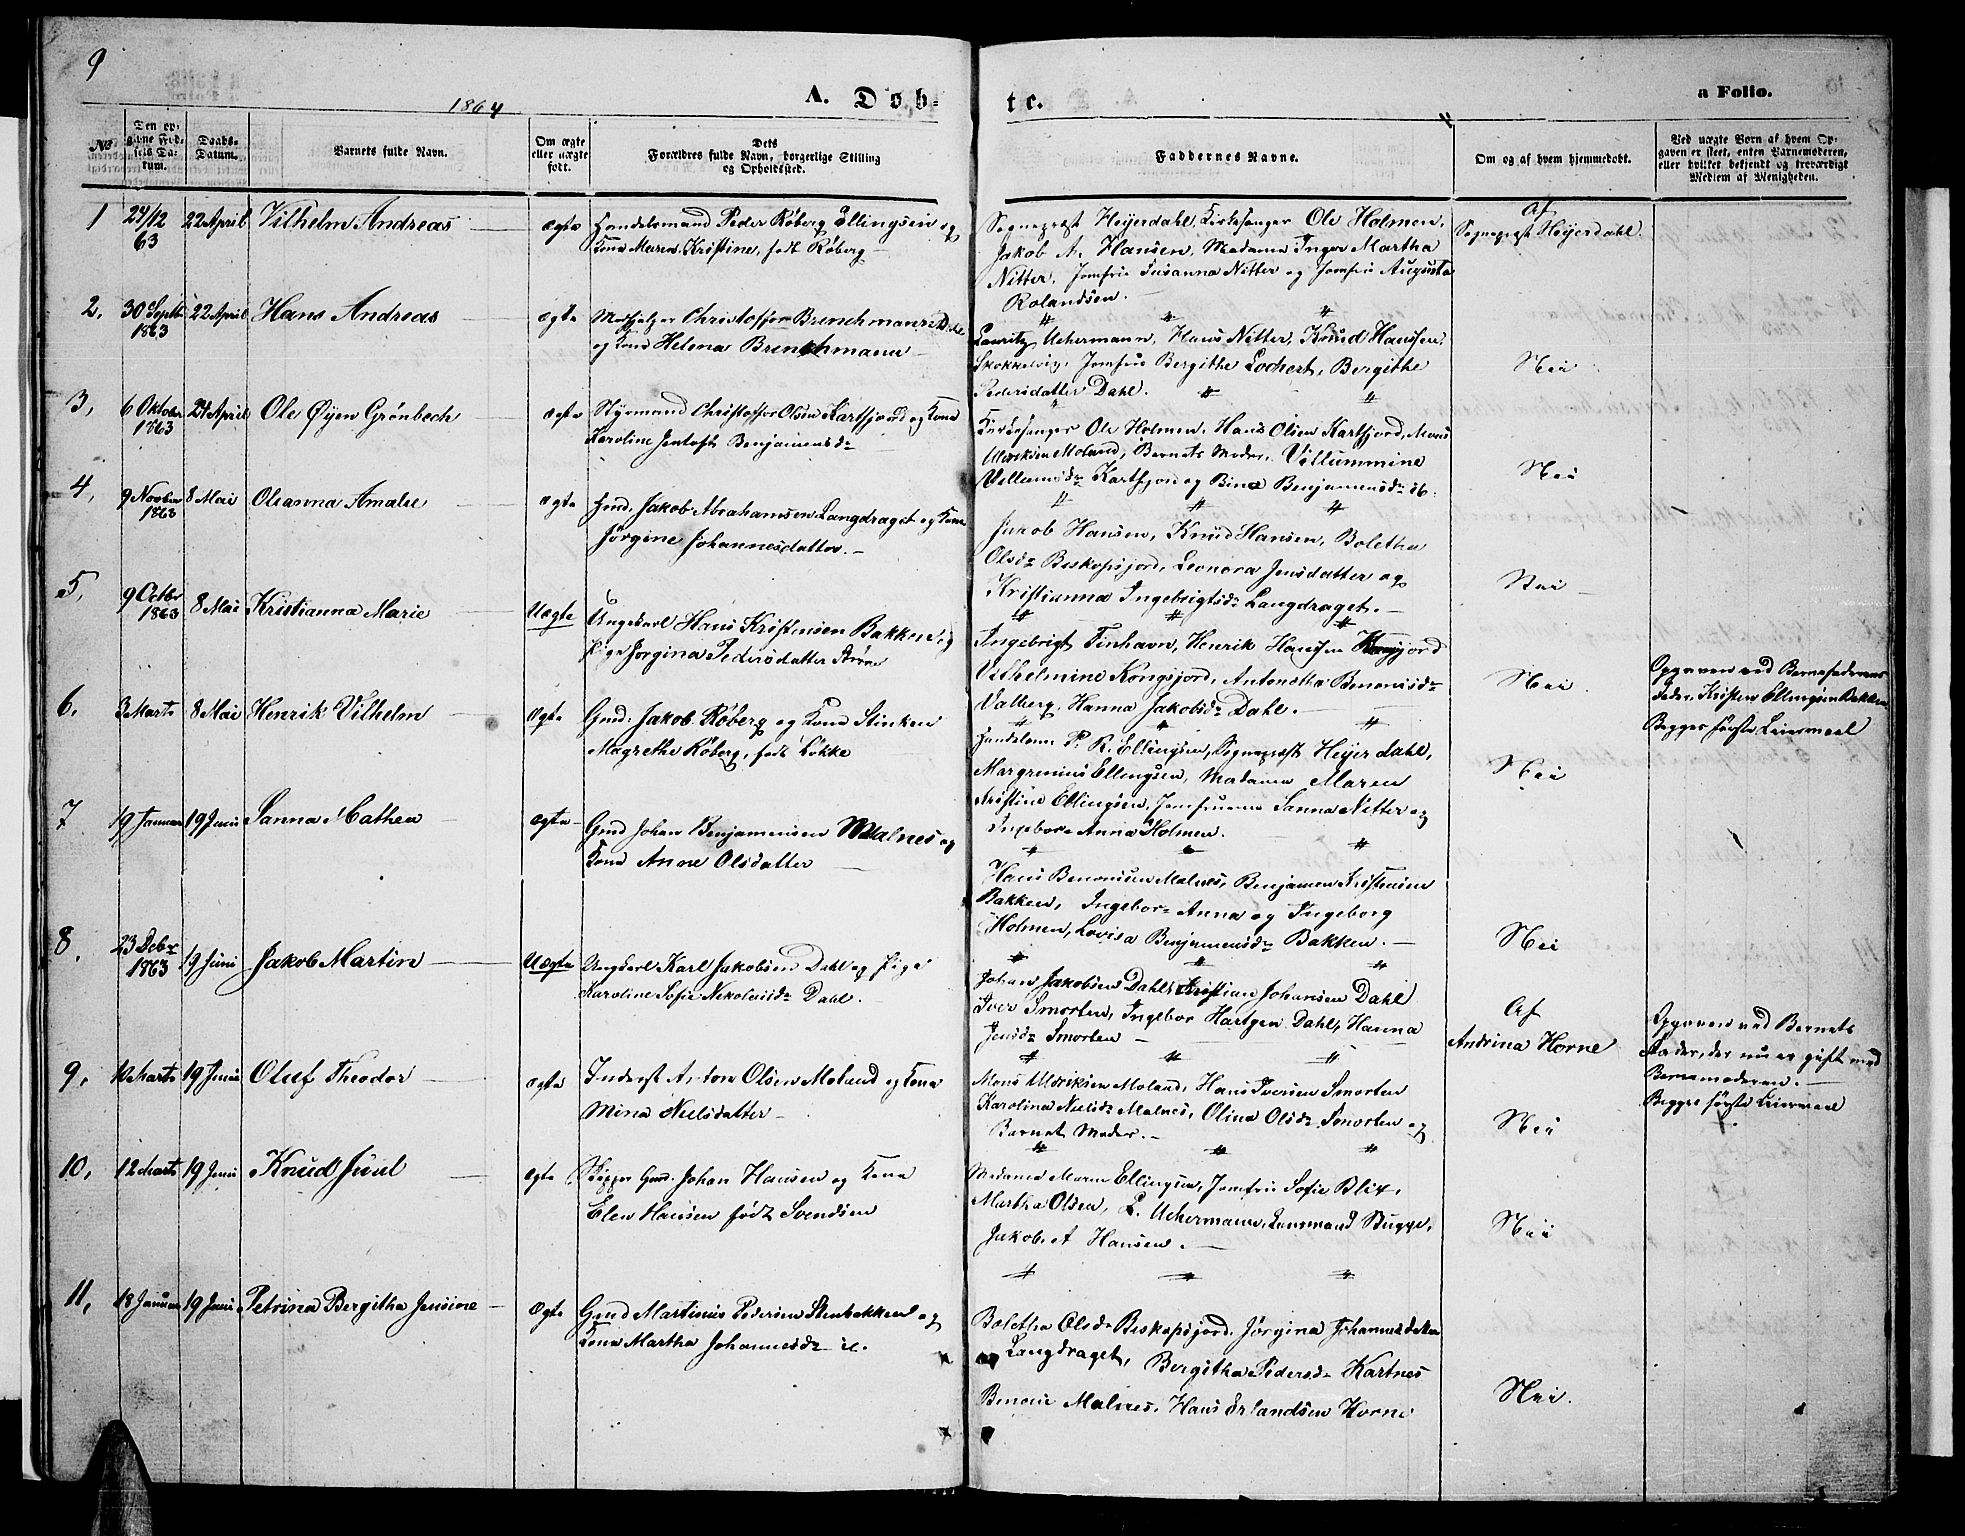 9
1864
A. Døb-
te.
a Folio.
No
Den op-
givne Fød-
sels Da-
tum.
Daabs-
Datum.
Barnets fulde Navn.
Om ægte
eller uægte
født.
Dets
Forældres fulde Navn, borgerlige Stilling
og Opholdssted.
Faddernes Navne.
Om og af hvem hjemmedøbt.
Ved uægte Børn af hvem Op-
gaven er skeet, enten Barnemoderen,
eller hvilket bekjendt og troværdigt
Medlem af Menigheden.
1
24/12
63
22 April
Vilhelm Andreas
ægte
Handelsmand Peder Røberg Ellingsen og
Kone Maren Kristine, født Røberg
Sognepræst Heyerdahl, Kirkesanger Ole Holmen,
Jakob A. Hansen, Madame Inger Martha
Nitter, Jomfru Susanna Nitter og Jomfru Augusta
Rolandsen.
Af
Sognepræst Heyerdahl.
2,
30 Septbr
1863
22 April
Hans Andreas
ægte
Christoffer Brenchmann
og Kone Helena Brenchmann
Lauritz Uchermann, Hans Nitter, Knud Hanssen,
Skokkelvig, Jomfru Bergithe Lochert, Bergithe
Pedersdatter Dahl.
Nei
3,
6 Oktober
1863
24 April
Ole Øyen Grønbech
ægte
Styrmand Christoffer Olsen Kartfjord og Kone
Karoline Jentoft Benjaminsdr
Kirkesanger Ole Holmen, Hans Olsen Kartfjord, Mons
Ulriksen Moland, Barnets Moder, Villummine
Villumsdr Kartfjord og Bina Benjaminsdr
Nei
4,
9 Novbr
1863
8 Mai
Oleanna Amalie
ægte
Gmd. Jakob Abrahamsen Langdraget og Kone
Jørgine Johannesdatter.
Jakob Hansen, Knud Hansen, Boletha
Olsdr Biskopsjord, Leonora Jensdatter og
Kristianna Ingebrigtsdr Langdraget.
Nei
5,
9 Octbr
1863
8 Mai
Kristianna Marie
Uægte
Ungkarl Hans Kristensen Bakken, og
Pige Jørgina Pedersdatter
Ingebrigt Finhavn, Henrik Hansen Kongsjord
Vilhelmine Kongsjord, Antonetta Benonisdr
Valberg, Hanna Jakobsdr Dahl.
Nei.
Opgaven ved Barnefaderens
Fader, Kristen Ellingsen Bakken
Begges første Leiermaal
6,
3 Marts
8 Mai
Henrik Vilhelm
ægte
Gmd: Jakob Røberg og Kone Stinken
Magrethe Røberg, født Løkke
Handelsm. P. R. Ellingsen, Sognepræst Heyerdahl,
Margrenius Ellingsen, Madamen Maren
Kristine Ellingsen, Jomfruerne Sanna Nitter og
Ingebor Anna Holmen.
Nei
7
19 Januar
19 Juni
Sanna Mathea
ægte
Gmd Johan Benjaminsen Malnes og
Kone Anne Olsdatter
Hans Benonisen Malnes, Benjamin Kristensen
Bakken, Ingebor Anna og Ingeborg
Holmen, Lovisa Benjaminsdr Bakken.
Nei
8.
23 Debr
1863
19 Juni
Jakob Martin
Uægte
Ungkarl Karl Jakobsen Dahl og Pige
Karoline Sofie Nikolaisdr Dahl.
Johan Jakobsen Dahl, Kristian Johansen Dahl
Iver Smorten, Ingebor Hartgen Dahl, Hanna
Jensdr Smorten
Af
Andrina Horne
Opgaven ved Barnets
Fader, der nu er gift med
Barnemoderen.
Begges første Leiermaal
9,
10 Marts
19 Juni
Oluf Theodor
ægte
Inderst Anton Olsen Moland og Kone
Mina Nielsdatter
Mons Ulriksen Moland, Hans Iversen Smorten
Karolina Nielsdr Malnes, Olina Olsdr Smorten og
Barnets Moder.
Nei
10,
12 Marts
19 Juni
Knud Juul
ægte
Skipper Gmd. Johan Hansen og Kone
Elen Hansen født Svendsen
Madame Maren Ellingsen, Jomfru Sofie Blix,
Martha Olsen, L. Uchermann, Lensmand Bugge,
Jakob A Hansen.
Nei
11,
18 Januar
19 Juni
Petrina Bergitha Jensine
Ægte
Gmd Martinus Pedersen Stenbakken og
Kone Martha Johannesdr
Boletha Olsdr Biskopsjord. Jørgina Johannesdatter
Langdraget, Bergitha Pedersdr Kartnes
Benoni Malnes, Hans Erlandsen Horne
Nei.